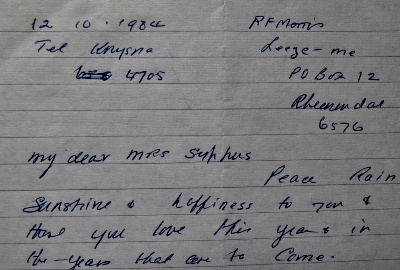 12 10 . 1984
RF Morris
Tel Knysna
Leeze-me
4705
PO Box 12
Rheenendal
6576
My dear Mrs Syphus
Peace Rain
Sunshine & happiness to you &
those you love this year & in
the years that are to come.